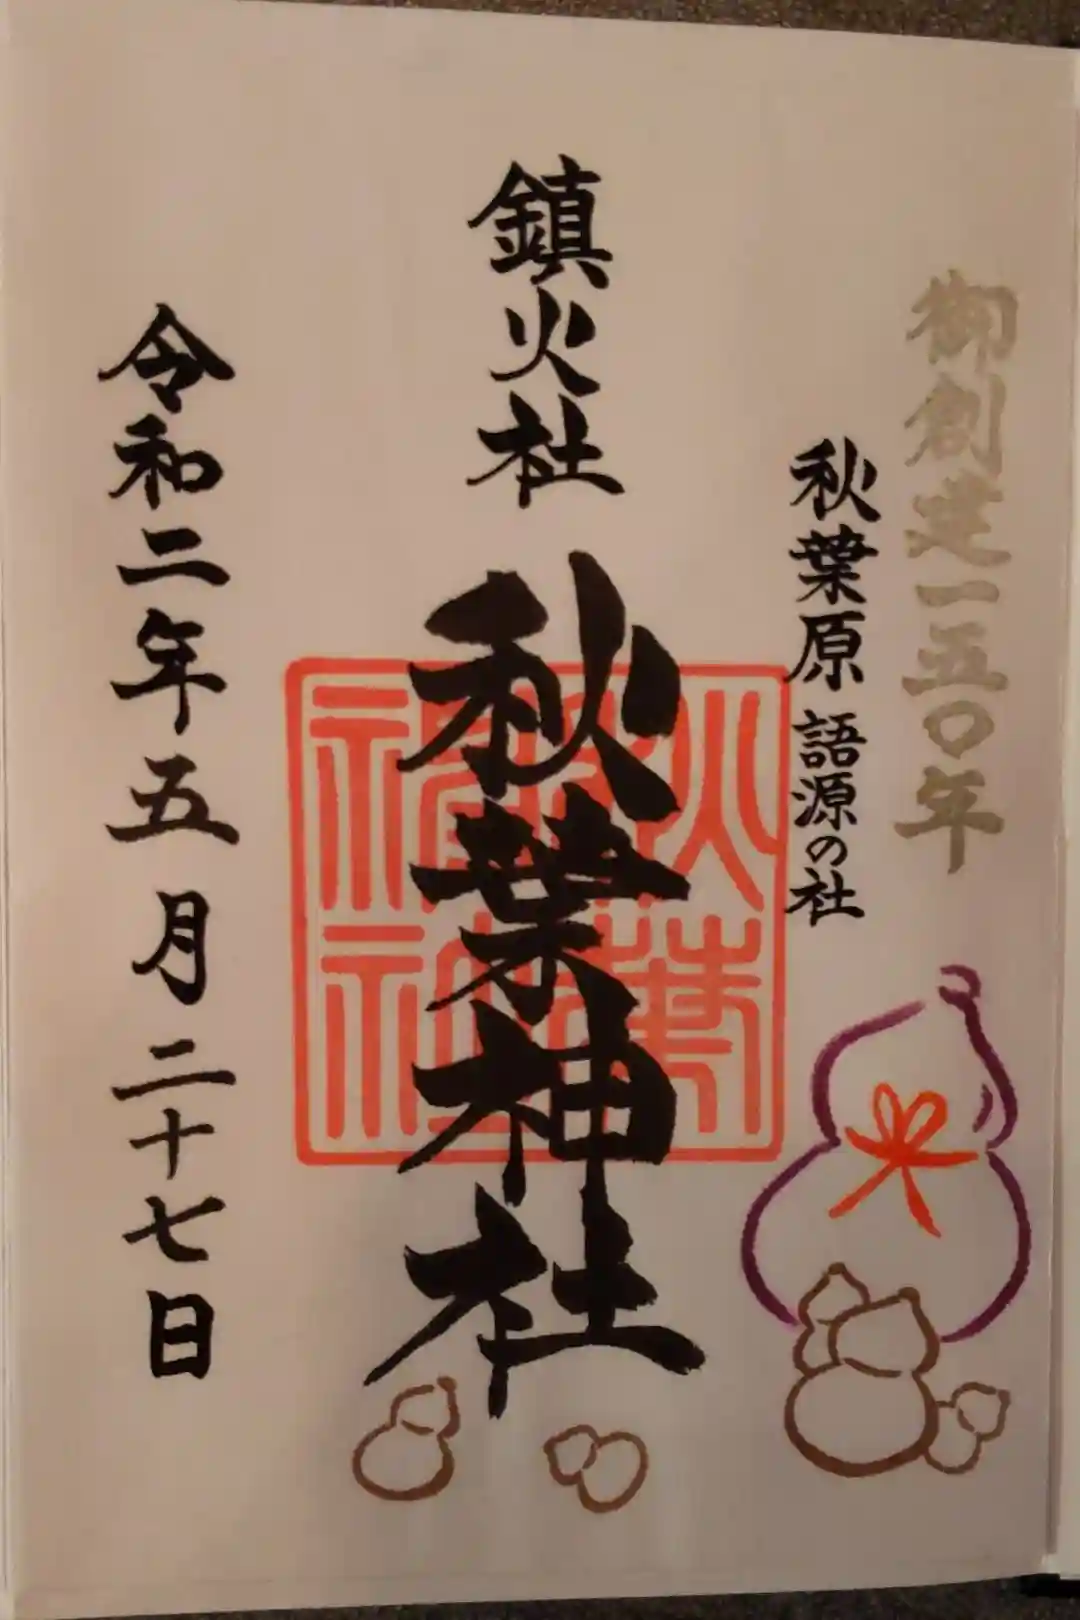 御創建一五〇年
秋葉原 語源の社
鎮火社 秋葉神社
秋葉
神社
令和二年五月二十七日